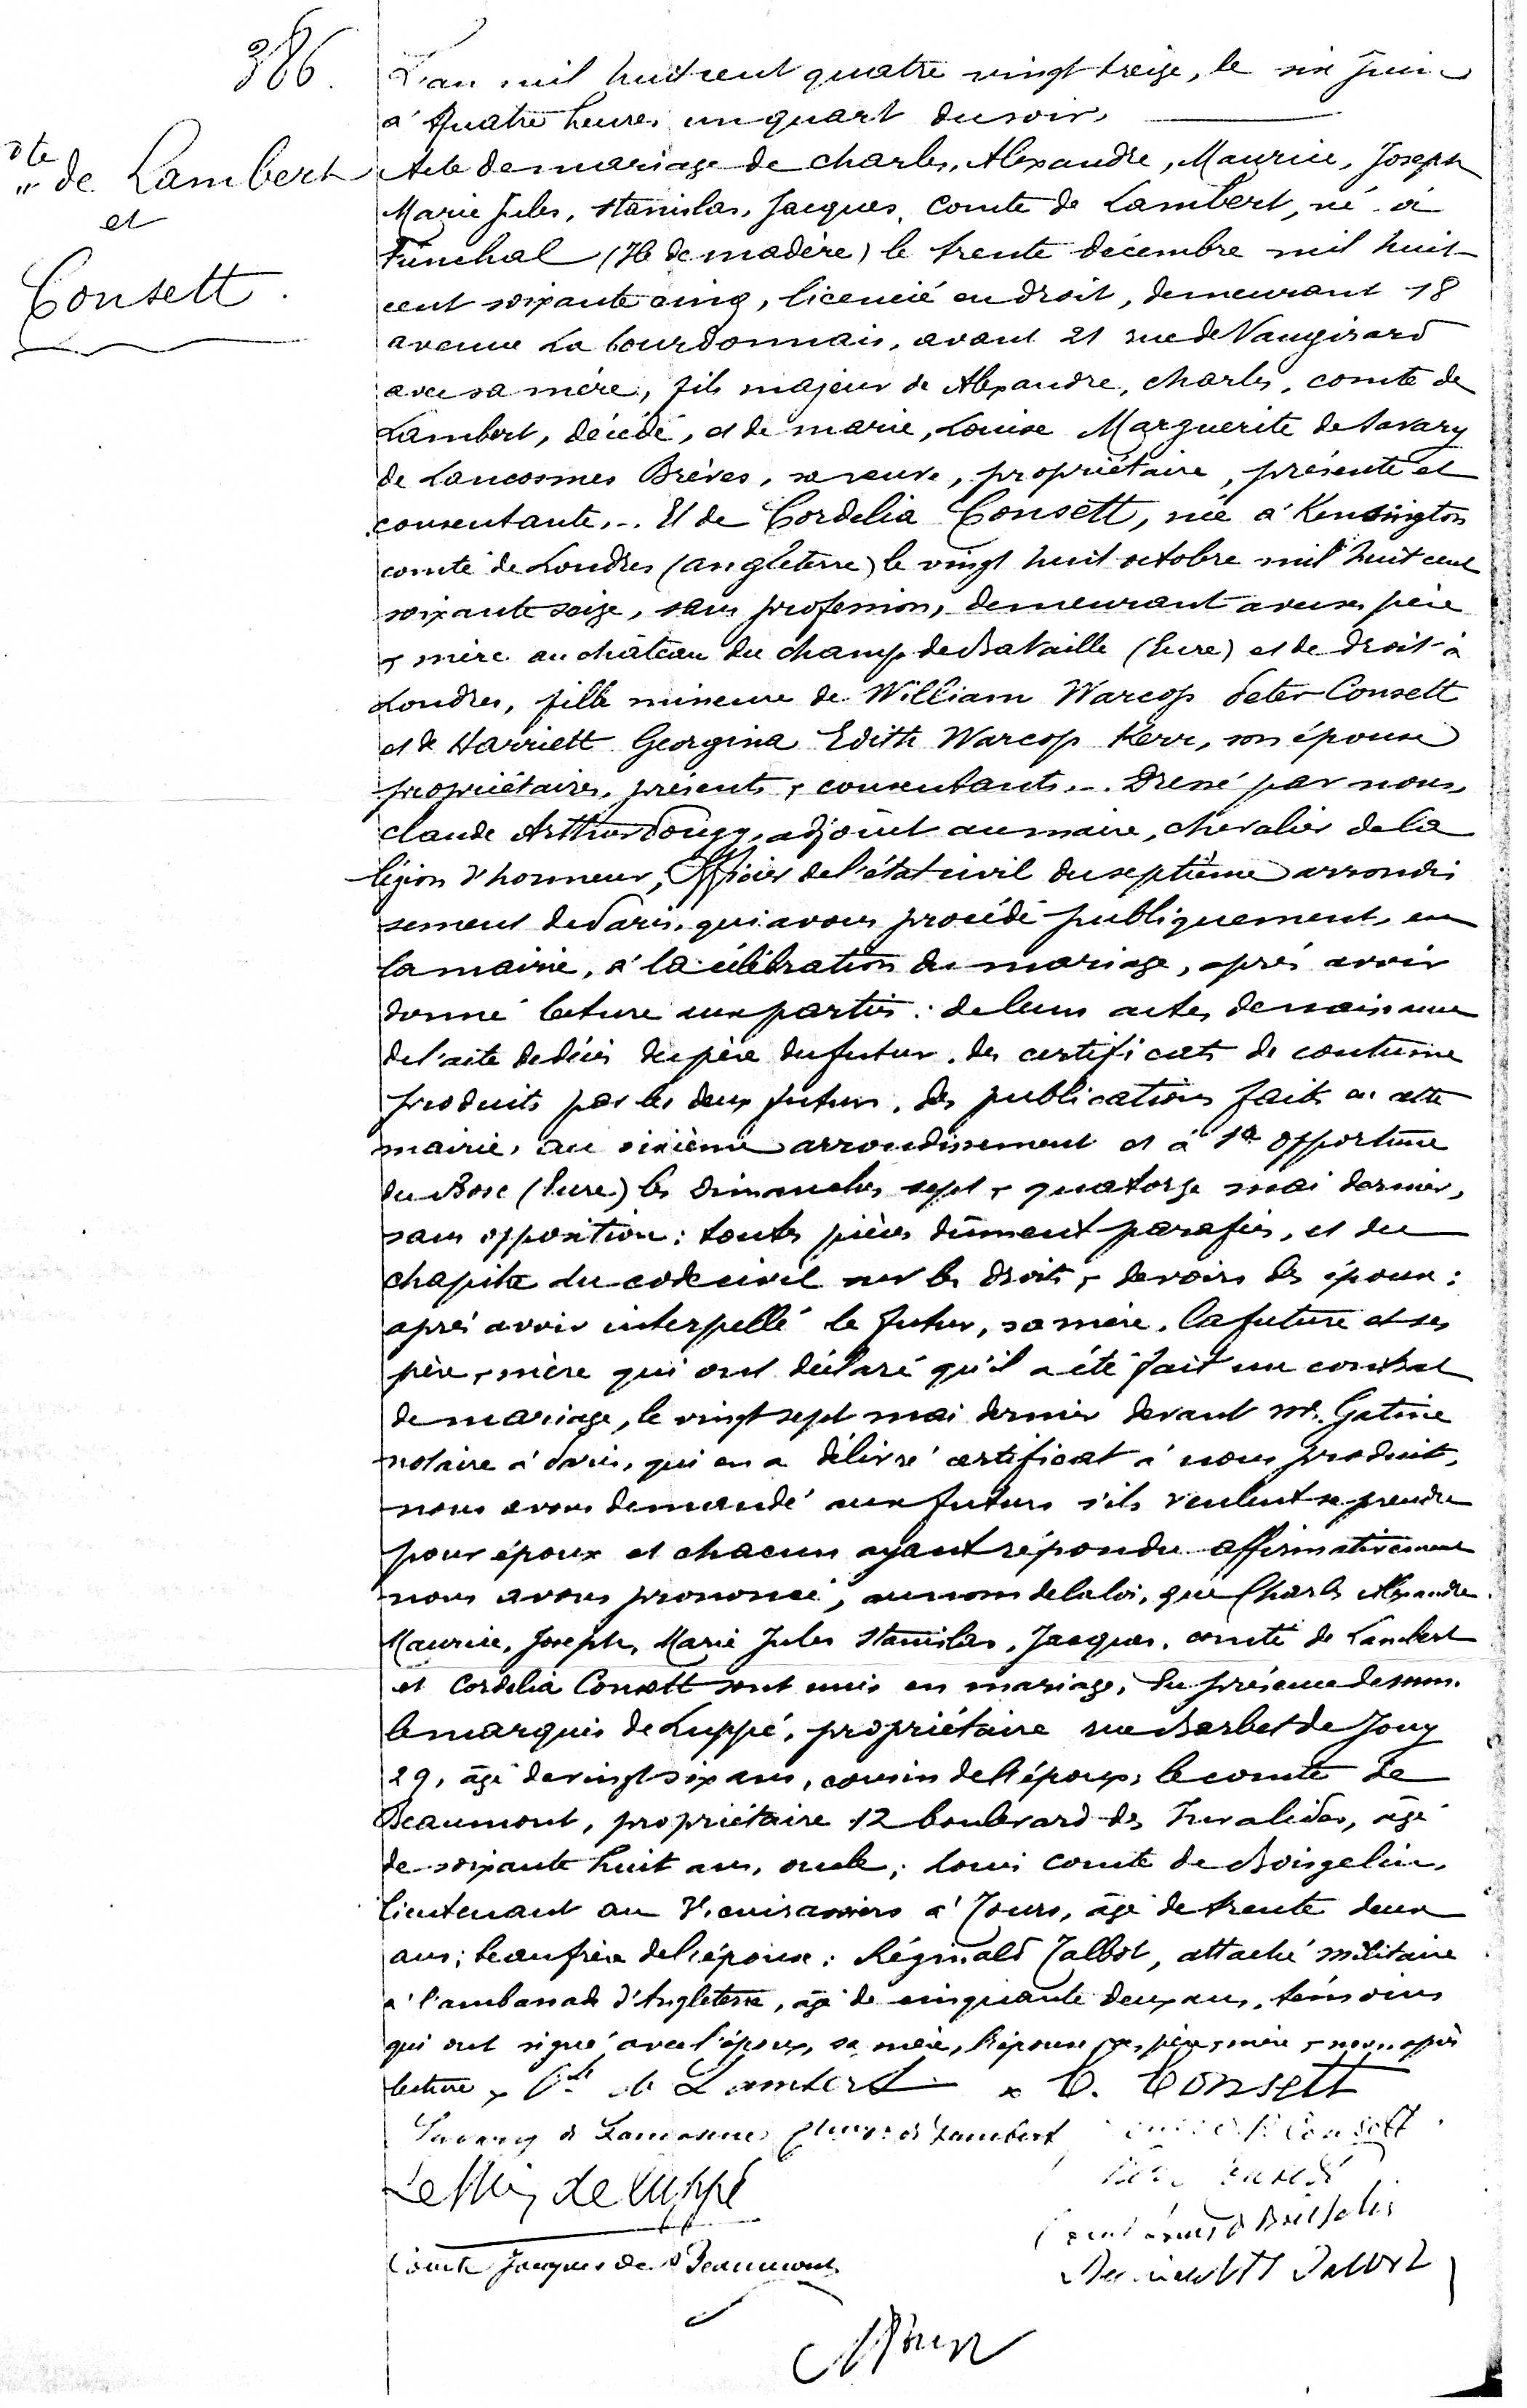 386.
cte de Lambert
et
Consett.
L'an mil huit cent quatre vingt treize, le six juin
à quatre heures un quart du soir,
Acte de mariage de Charles, Alexandre, Maurice, Joseph
Marie Jules, Stanislas, Jacques, comte de Lambert, né à
Funchal (Ile de madère) le trente décembre mil huit
cent soixante cinq, licencié en droit, demeurant 18
avenue La bourdonnais, avant 21 rue de Vaugirard
avec sa mère, fils majeur de Alexandre, Charles, comte de
Lambert, décédé, et de marie, Louise Marguerite de Savary
de Lancosmes Brèves, sa veuve, propriétaire, présente et
consentante. _ Et de Cordelia Consett, née à Kensington
comté de Londres (angleterre) le vingt huit octobre mil huit cent
soixante seize, sans profession, demeurant avec ses père
+ mère au château du champ de Bataille (Eure) et de droit à
Londres, fille mineure de William Warcop Peter Consett
et de Harriett Georgina Edith Warcop Kerr, son épouse
propriétaires, présents + consentants. _ Dressé par nous,
Claude Arthur Fougy, adjoint au maire, chevalier de la
légion d'honneur, Officier de l'état civil du septième arrondis
sement de Paris, qui avons procédé publiquement, en
la mairie, à la célébration du mariage, après avoir
donné lecture aux parties : de leurs actes de naissance
de l'acte de décès du père du futur, des certificats de coutume
produits par les deux futurs, des publications faites en cette
mairie, au sixième arrondissement et à Ste Opportune
du Bosc (Eure) les dimanches sept + quatorze mai dernier,
sans opposition : toutes pièces dûment parafées, et du
chapitre du code civil sur les droits + devoirs des époux :
après avoir interpellé le futur, sa mère, la future et ses
père + mère qui ont déclaré qu'il a été fait un contrat
de mariage, le vingt sept mai dernier devant Me. Gatine
notaire à Paris, qui en a délivré certificat à nous produit,
nous avons demandé aux futurs s'ils veulent se prendre
pour époux et chacun ayant répondu affirmativement
nous avons prononcé, au nom de la loi, que Charles Alexandre
Maurice, Joseph, Marie Jules Stanislas, Jacques, comte de Lambert
et Cordelia Consett sont unis en mariage, En présence de mm.
le marquis de Luppé, propriétaire rue Barbet de Jouy
29, âgé de vingt six ans, cousin de l'époux, le comte de
Beaumont, propriétaire 12 boulevard des Invalides, âgé
de soixante huit ans, oncle ; Louis comte de Boisgelin,
lieutenant au Ve cuirassiers à Tours, âgé de trente deux
ans ; beau frère de l'époux : Réginald Talbot, attaché militaire
à l'ambassade d'Angleterre, âgé de cinquante deux ans, témoins
qui ont signé avec l'époux, sa mère, l'épouse, ses père + mère + nous après
lecture + Cte de Lambert x C. Consett
Savary de Lancosmes de Lambert Consett
Le Mis de Luppé
Comte Jacques de Beaumont
Talbot